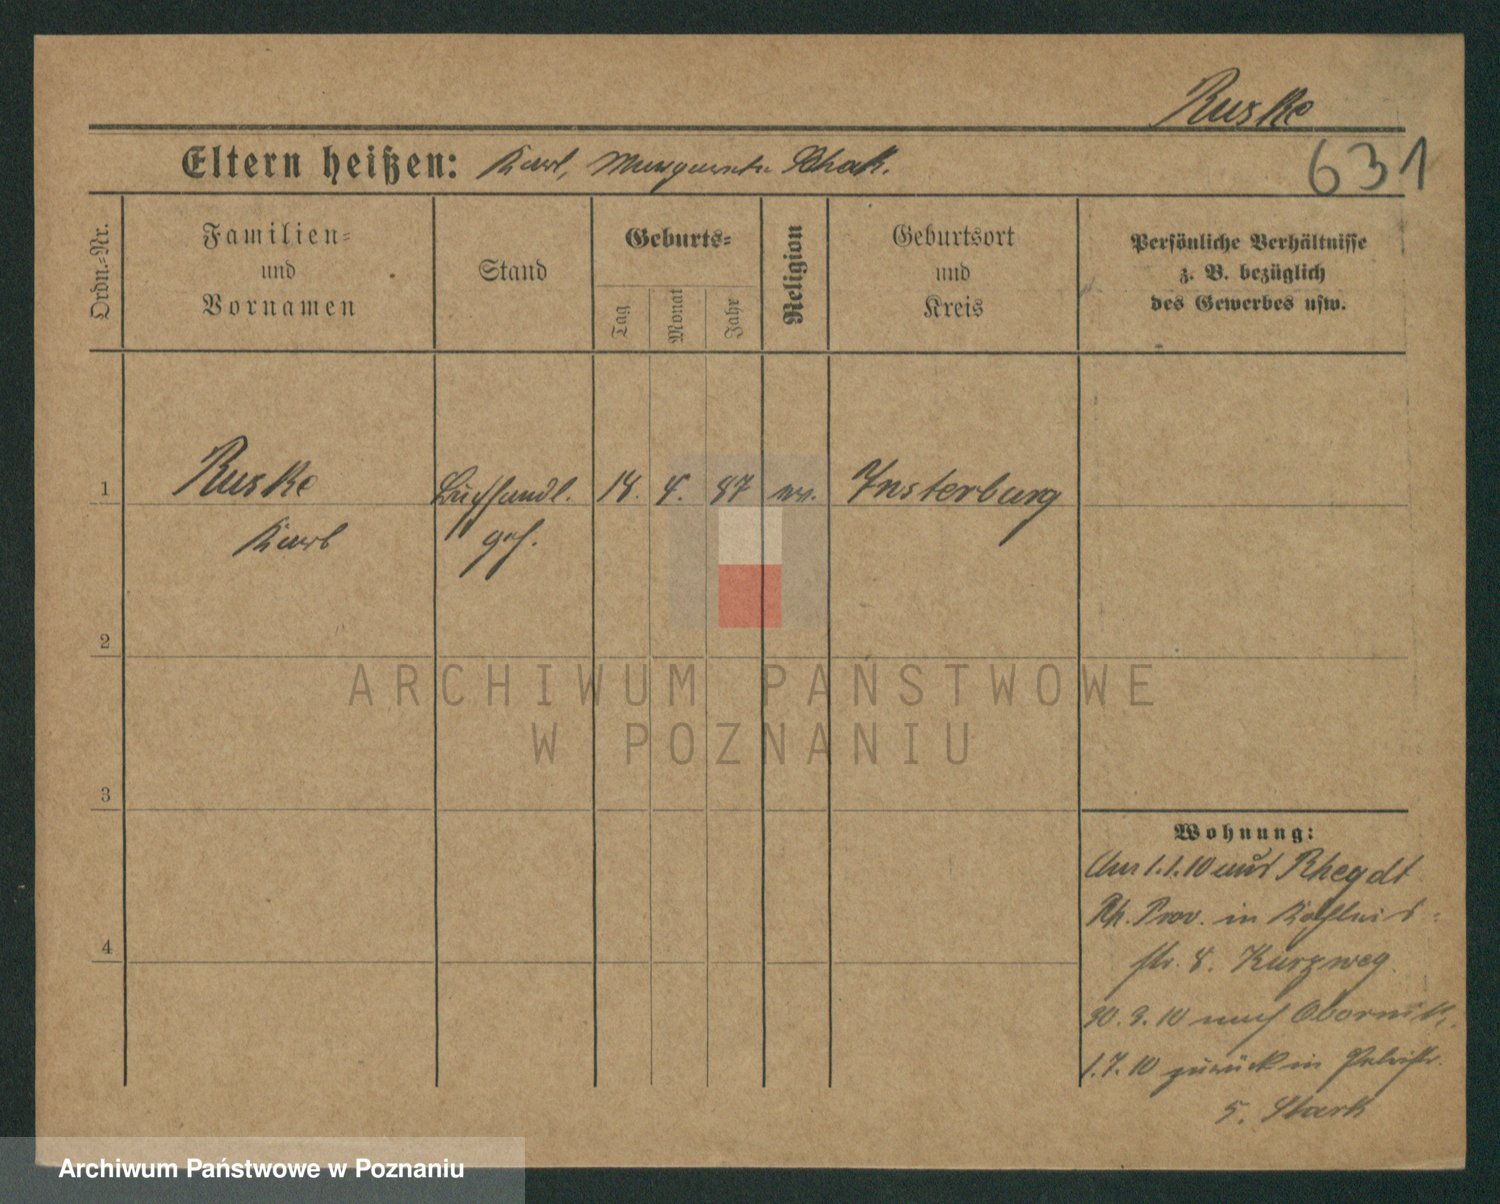 Ruske
Eltern heißen: Karl, Margarete Schak.
631
Ordn.-Nr.
Familien-
und
Vornamen
Stand
Geburts-
Tag
Monat
Jahr
Religion
Geburtsort
und
Kreis
Persönliche Verhältnisse
z. B. bezüglich
des Gewerbes usw.
1
Ruske
Karl
Buchhandl.
geh.
87
ev.
Insterburg
2
3
4
Wohnung:
1.1.10 aus Rheydt
Rh. Prov. in
str. 8. Kurzweg
30.3.10 nach Obornik,
1.7.10 zurück in
5. Stark
ARCHIWUM PAŃSTWOWE
W POZNANIU
Archiwum Państwowe w Poznaniu